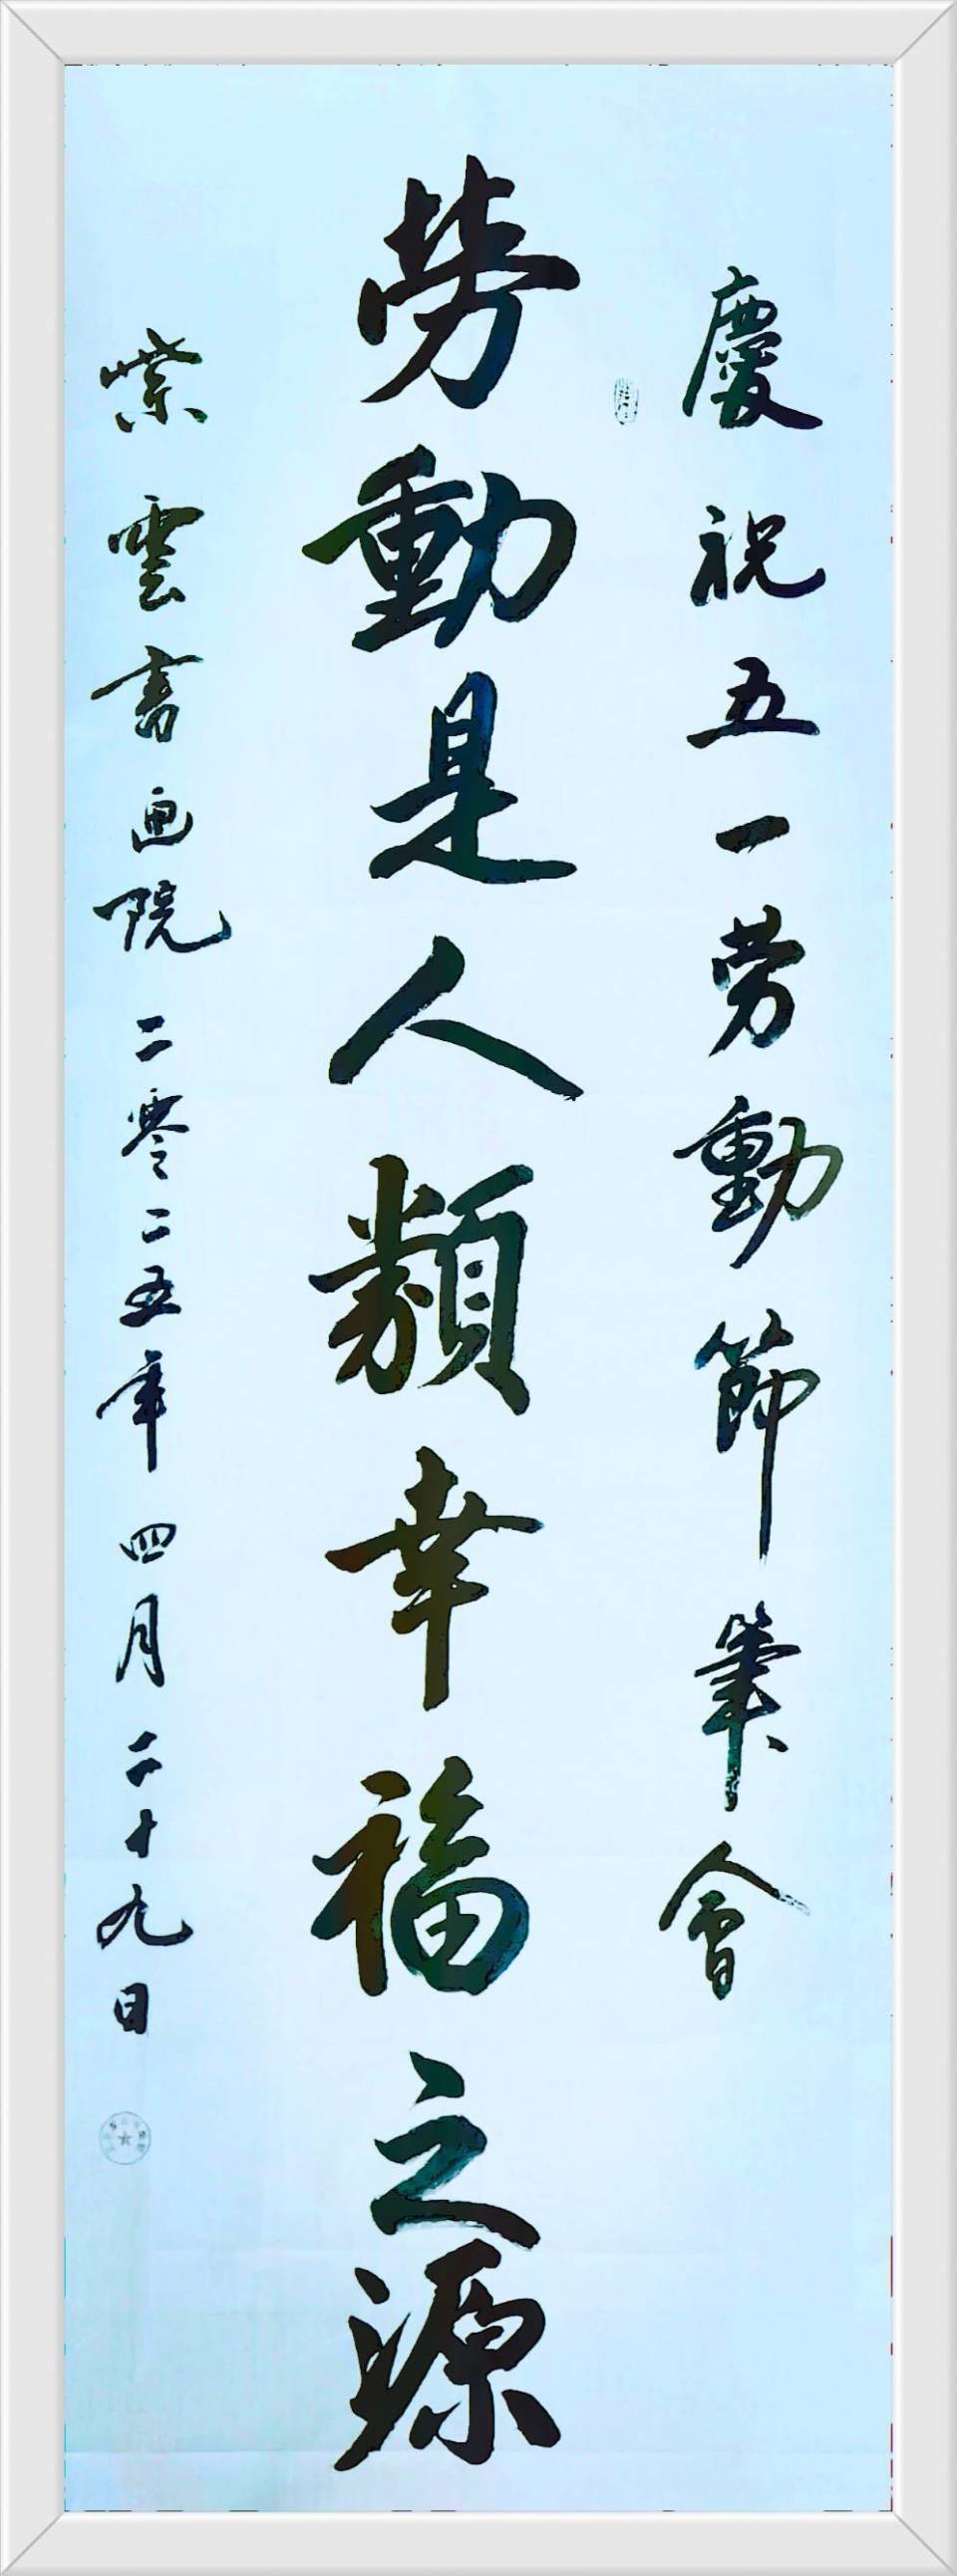 慶祝五一劳動節筆會
勞動是人類幸福之源
紫雲書画院 二零二五年四月二十九日